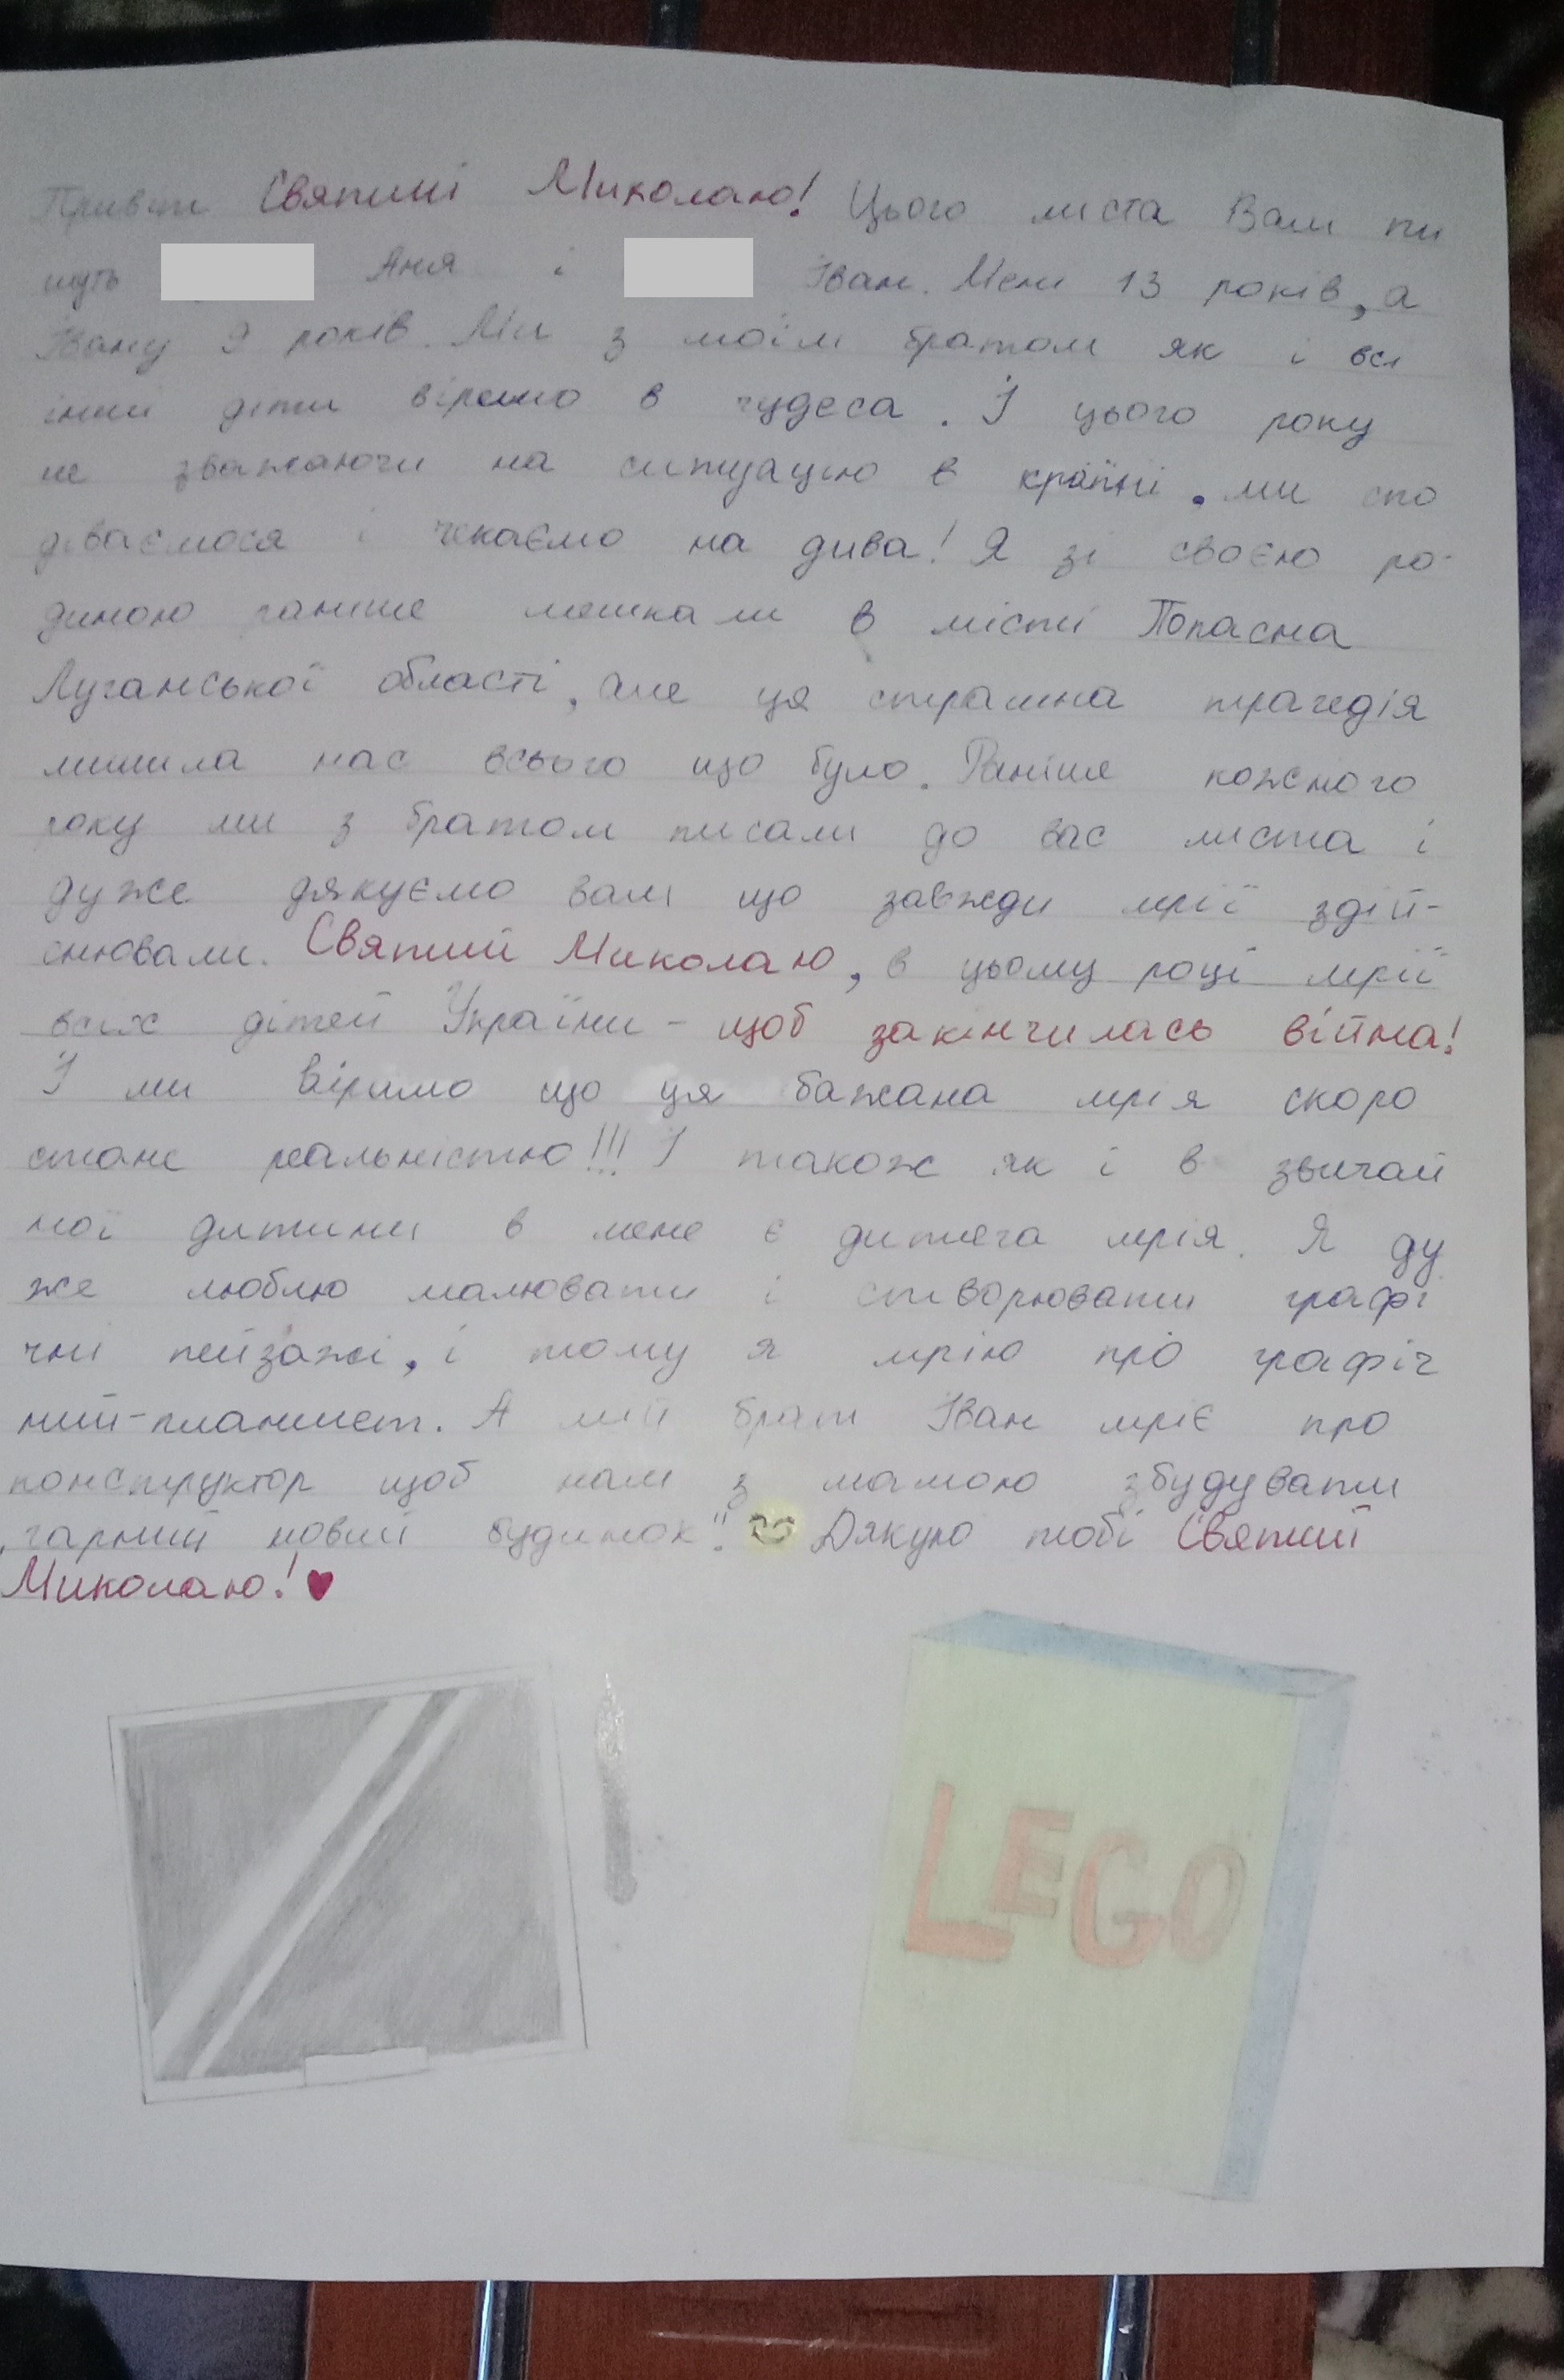 Привіт Святий Миколаю! Цього листа Вам пи
шуть Аня і Іван. Мені 13 років, а
Івану 9 років. Ми з моїм братом як і всі
інші діти віримо в чудеса. І цього року
не зважаючи на ситуацію в країні, ми спо
діваємося і чекаємо на дива! Я зі своєю ро-
диною раніше мешкали в місті Попасна
Луганської області, але ця страшна трагедія
лишила нас всього що було. Раніше кожного
року ми з братом писали до вас листа і
дуже дякуємо вам що завжди мрії здій-
снювали. Святий Миколаю, в цьому році мрії
всіх дітей України - щоб закінчилась війна!
І ми віримо що ця бажана мрія скоро
стане реальністю!!! І також як і в звичай
ної дитини в мене є дитяча мрія. Я ду
же люблю малювати і створювати графі
чні пейзажі, і тому я мрію про графіч
ний-планшет. А мій брат Іван мріє про
конструктор щоб нам з мамою збудувати
гарний новий будинок!! Дякую тобі Святий
Миколаю! ♥
LEGO